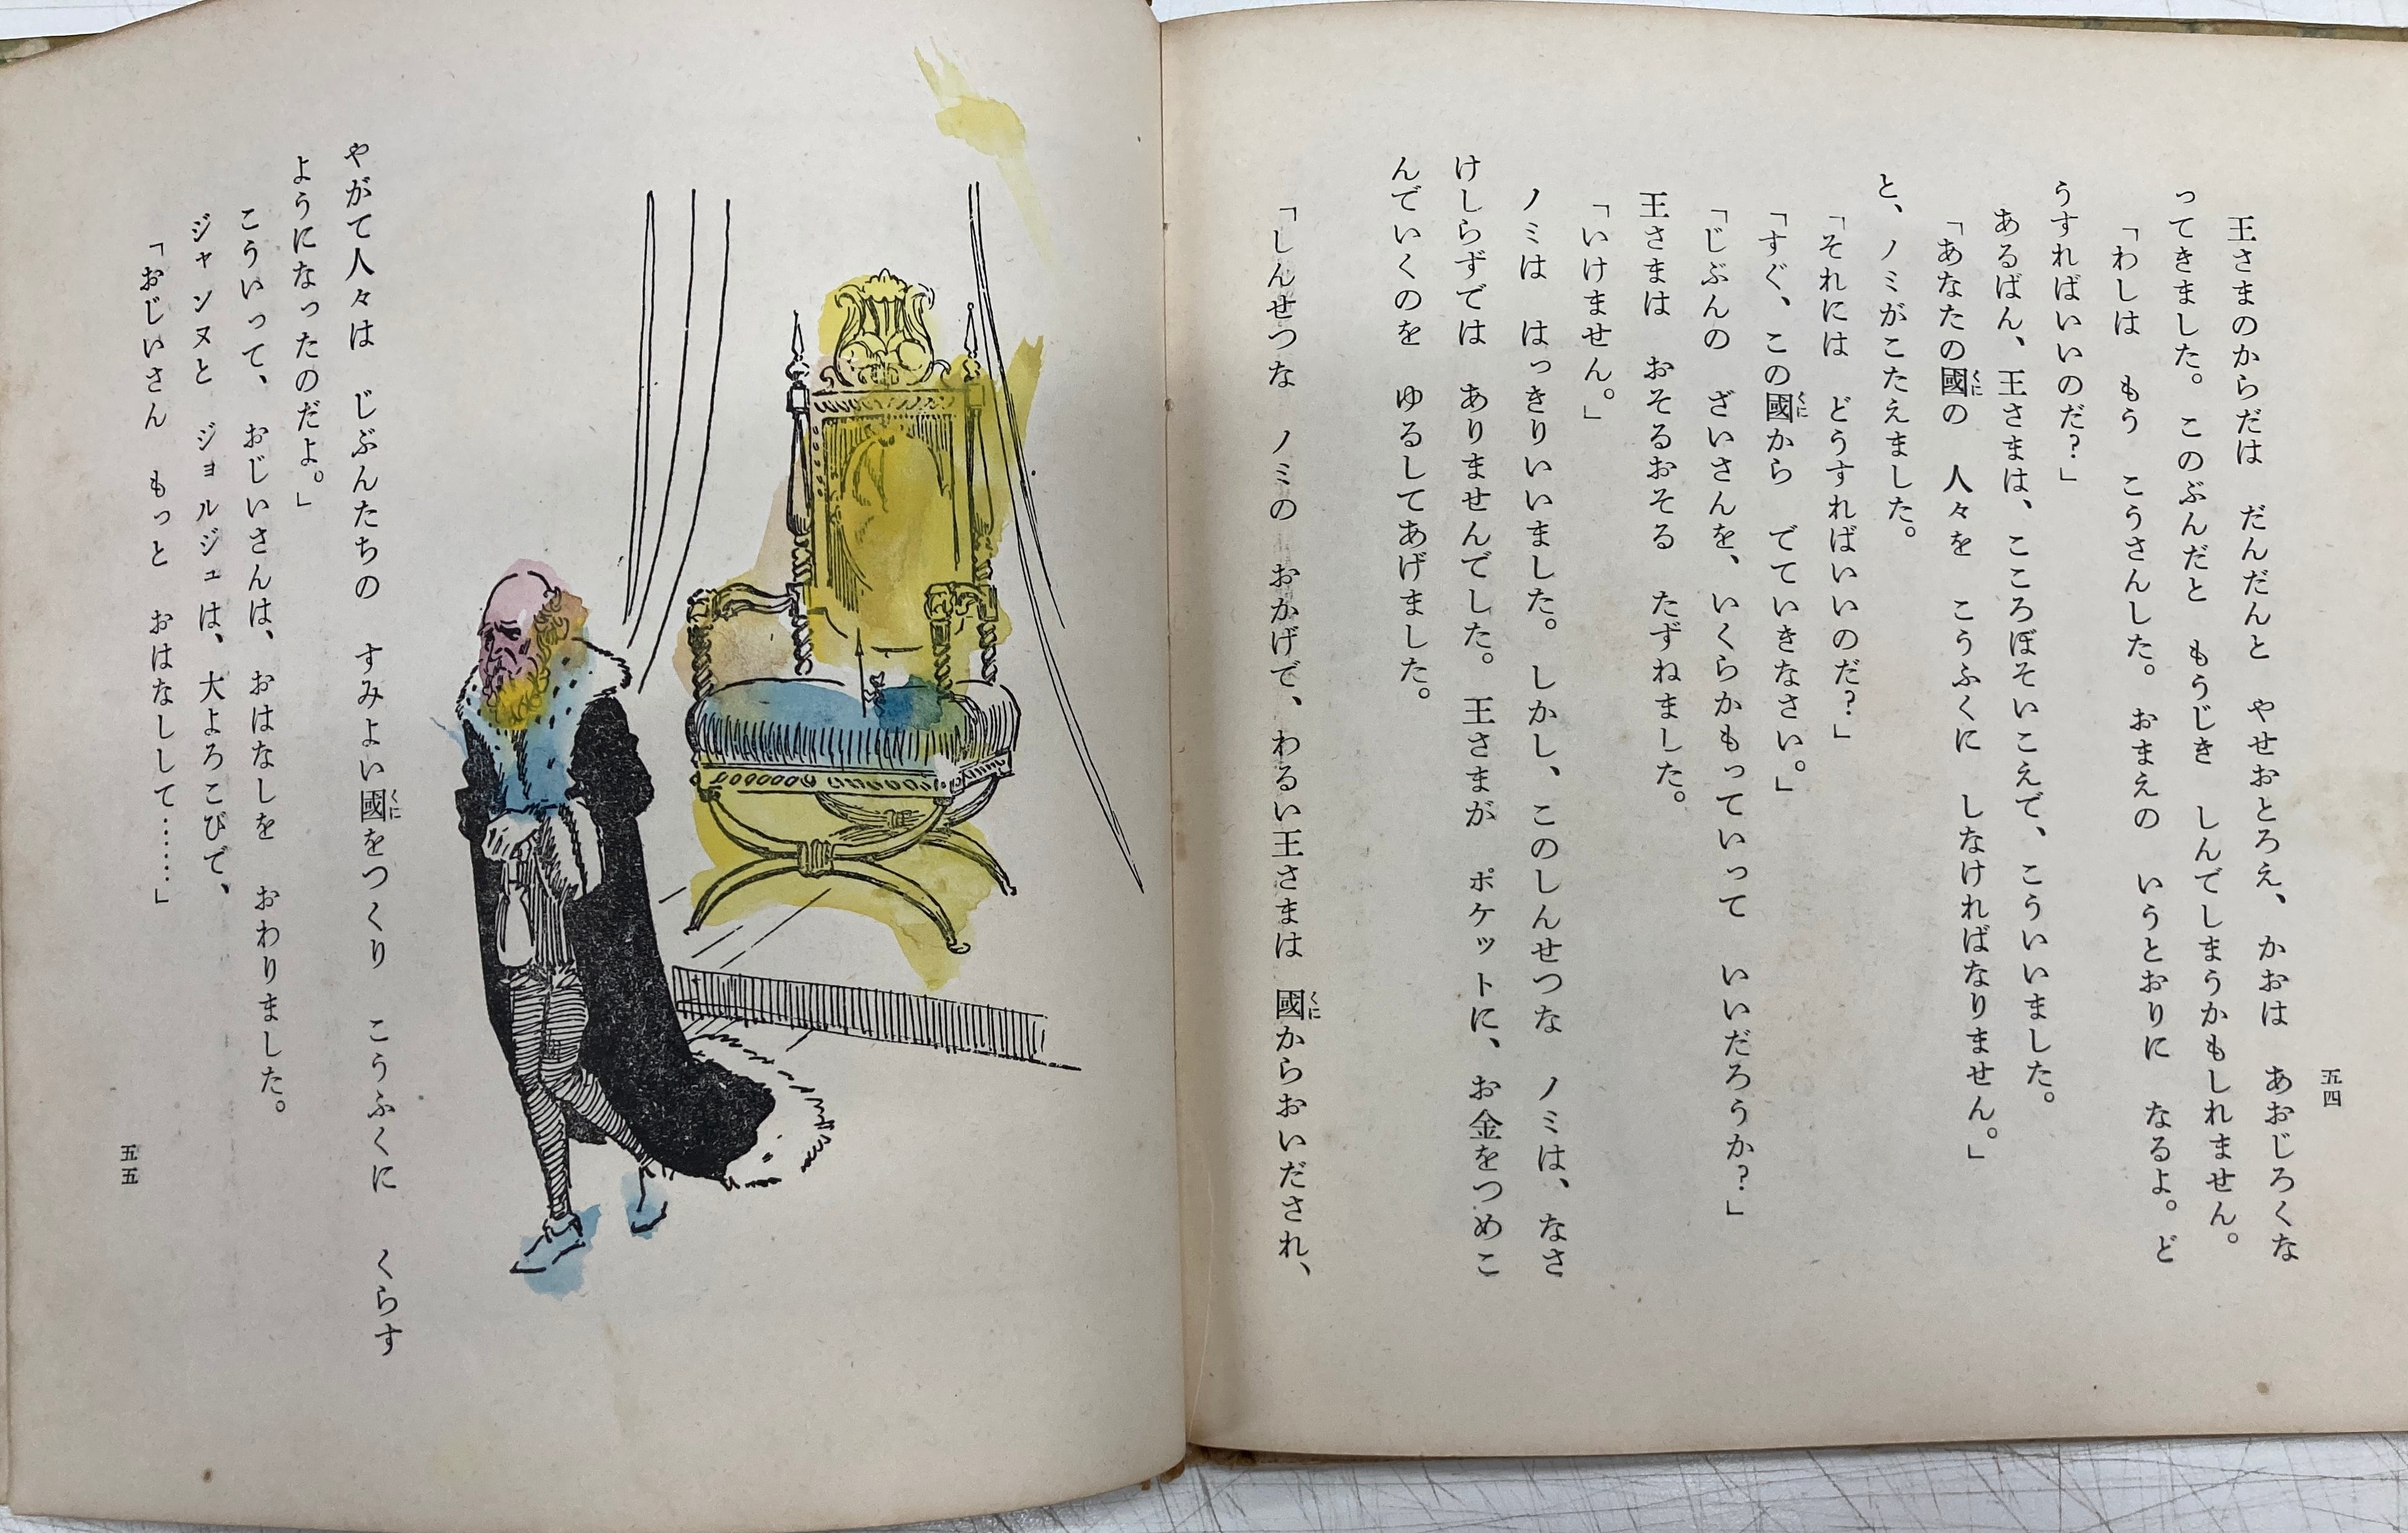 王さまのからだは　だんだんと　やせおとろえ、かおは　あおじろくな
ってきました。このぶんだと　もうじき　しんでしまうかもしれません。
「わしは　もう　こうさんした。おまえの　いうとおりに　なるよ。ど
うすればいいのだ？」
あるばん、王さまは、こころぼそいこえで、こういいました。
「あなたの國の　人々を　こうふくに　しなければなりません。」
くに
と、ノミがこたえました。
「それには　どうすればいいのだ？」
「すぐ、この國から　でていきなさい。」
くに
「じぶんの　ざいさんを、いくらかもっていって　いいだろうか？」
王さまは　おそるおそる　たずねました。
「いけません。」
ノミは　はっきりいいました。しかし、このしんせつな　ノミは、なさ
けしらずでは　ありませんでした。王さまが　ポケットに、お金をつめこ
んでいくのを　ゆるしてあげました。
「しんせつな　ノミの　おかげで、わるい王さまは　國からおいだされ、
くに
五四
やがて人々は　じぶんたちの　すみよい國をつくり　こうふくに　くらす
くに
ようになったのだよ。」
こういって、おじいさんは、おはなしを　おわりました。
ジャンヌと　ジョルジュは、大よろこびで、
「おじいさん　もっと　おはなしして……」
五五